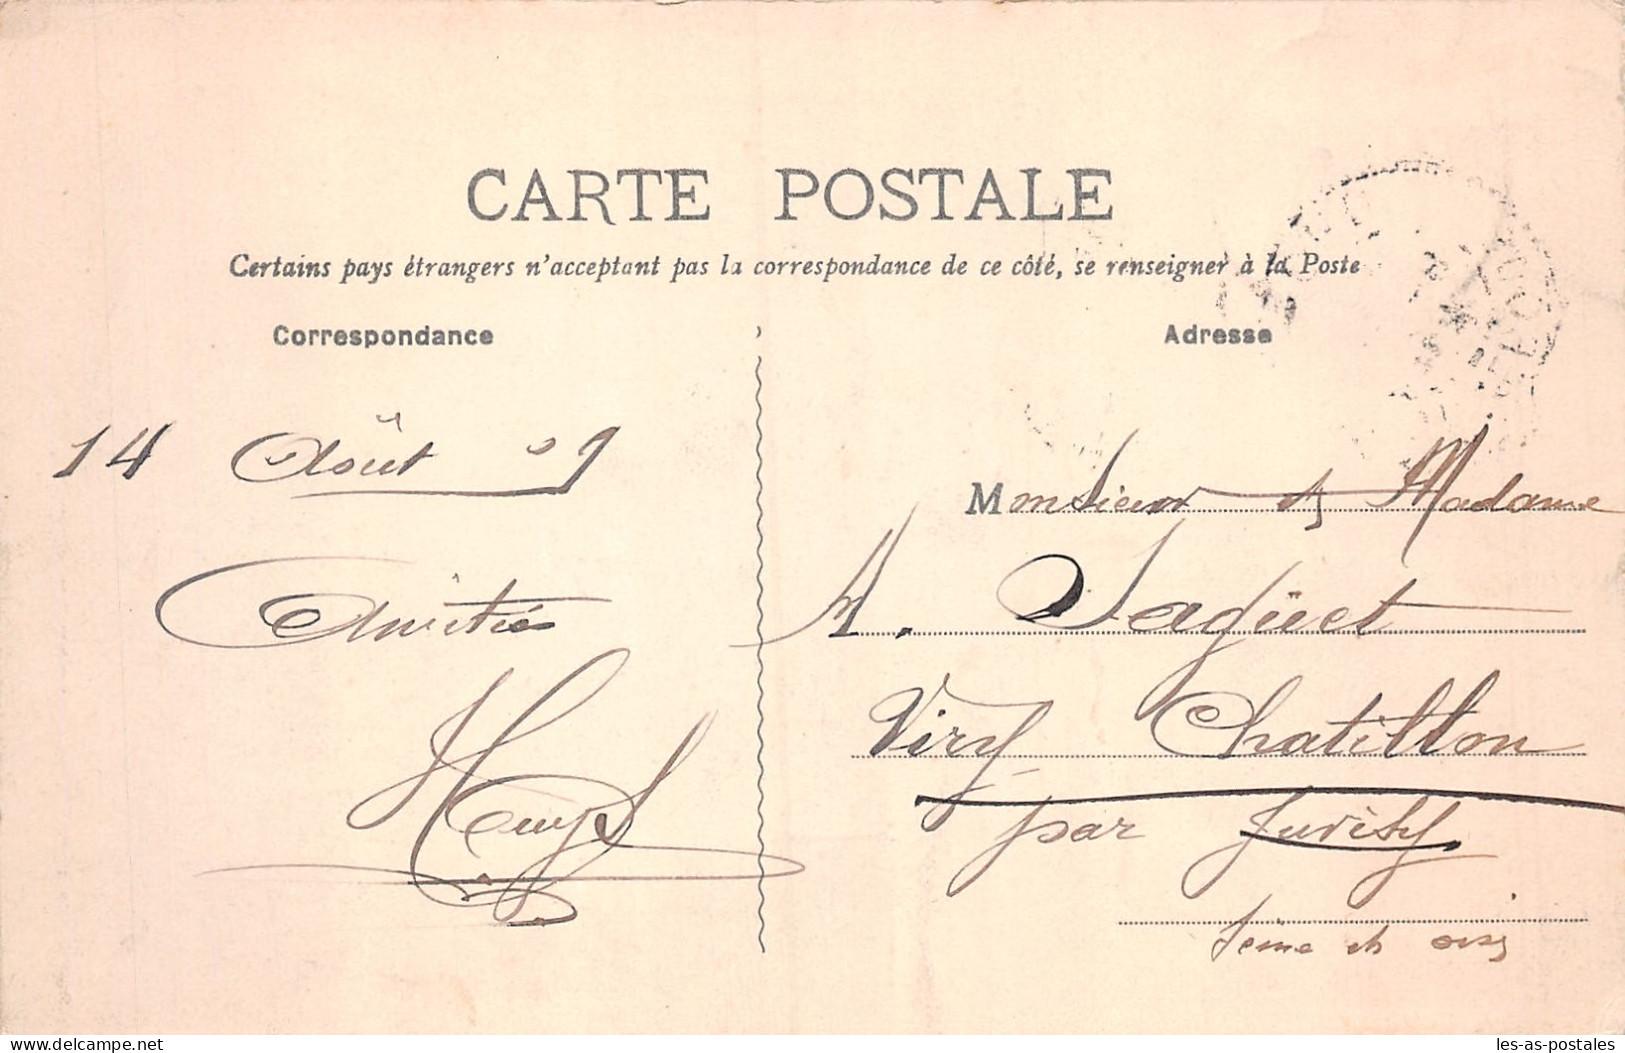 CARTE POSTALE
Certains pays étrangers n'acceptant pas la correspondance de ce côté, se renseigner à la Poste
Correspondance
Adresse
14 Août 09
Amitiés
Monsieur et Madame
A. Sagüet
Viry Chatillon
par Juvisy
Seine et oise
www.delcampe.net
les-as-postales